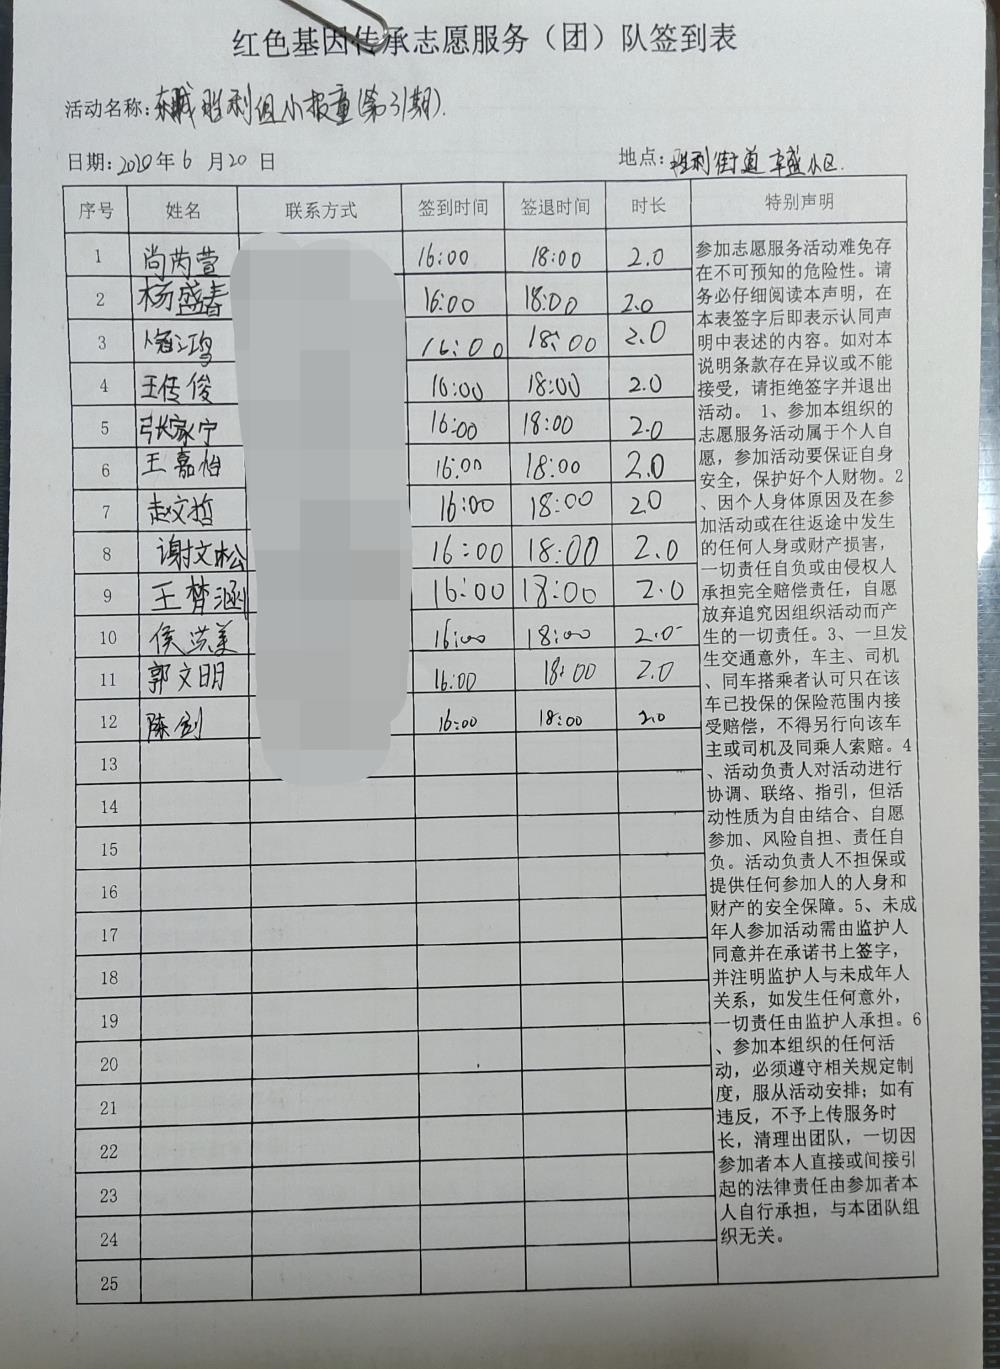 红色基因传承志愿服务（团）队签到表
活动名称：东城胜利组小报童（第31期）.
日期：2020年6月20日 地点：胜利街道 小区.
序号 姓名 联系方式 签到时间 签退时间 时长 特别声明
1 尚芮萱 16:00 18:00 2.0
2 杨盛春 16:00 18:00 2.0
3 16:00 18:00 2.0
4 王传俊 16:00 18:00 2.0
5 张家宁 16:00 18:00 2.0
6 王嘉怡 16:00 18:00 2.0
7 赵文哲 16:00 18:00 20
8 谢文松 16:00 18:00 2.0
9 王梦涵 16:00 18:00 2.0
10 侯洪美 16:00 18:00 2.0
11 郭文明 16:00 18:00 2.0
12 陈剑 16:00 18:00 2.0
13
14
15
16
17
18
19
20
21
22
23
24
25
参加志愿服务活动难免存
在不可预知的危险性。请
务必仔细阅读本声明，在
本表签字后即表示认同声
明中表述的内容。如对本
说明条款存在异议或不能
接受，请拒绝签字并退出
活动。 1、参加本组织的
志愿服务活动属于个人自
愿，参加活动要保证自身
安全，保护好个人财物。2
、因个人身体原因及在参
加活动或在往返途中发生
的任何人身或财产损害，
一切责任自负或由侵权人
承担完全赔偿责任，自愿
放弃追究因组织活动而产
生的一切责任。3、一旦发
生交通意外，车主、司机
、同车搭乘者认可只在该
车已投保的保险范围内接
受赔偿，不得另行向该车
主或司机及同乘人索赔。4
、活动负责人对活动进行
协调、联络、指引，但活
动性质为自由结合、自愿
参加、风险自担、责任自
负。活动负责人不担保或
提供任何参加人的人身和
财产的安全保障。5、未成
年人参加活动需由监护人
同意并在承诺书上签字，
并注明监护人与未成年人
关系，如发生任何意外，
一切责任由监护人承担。6
、参加本组织的任何活
动，必须遵守相关规定制
度，服从活动安排；如有
违反，不予上传服务时
长，清理出团队，一切因
参加者本人直接或间接引
起的法律责任由参加者本
人自行承担，与本团队组
织无关。